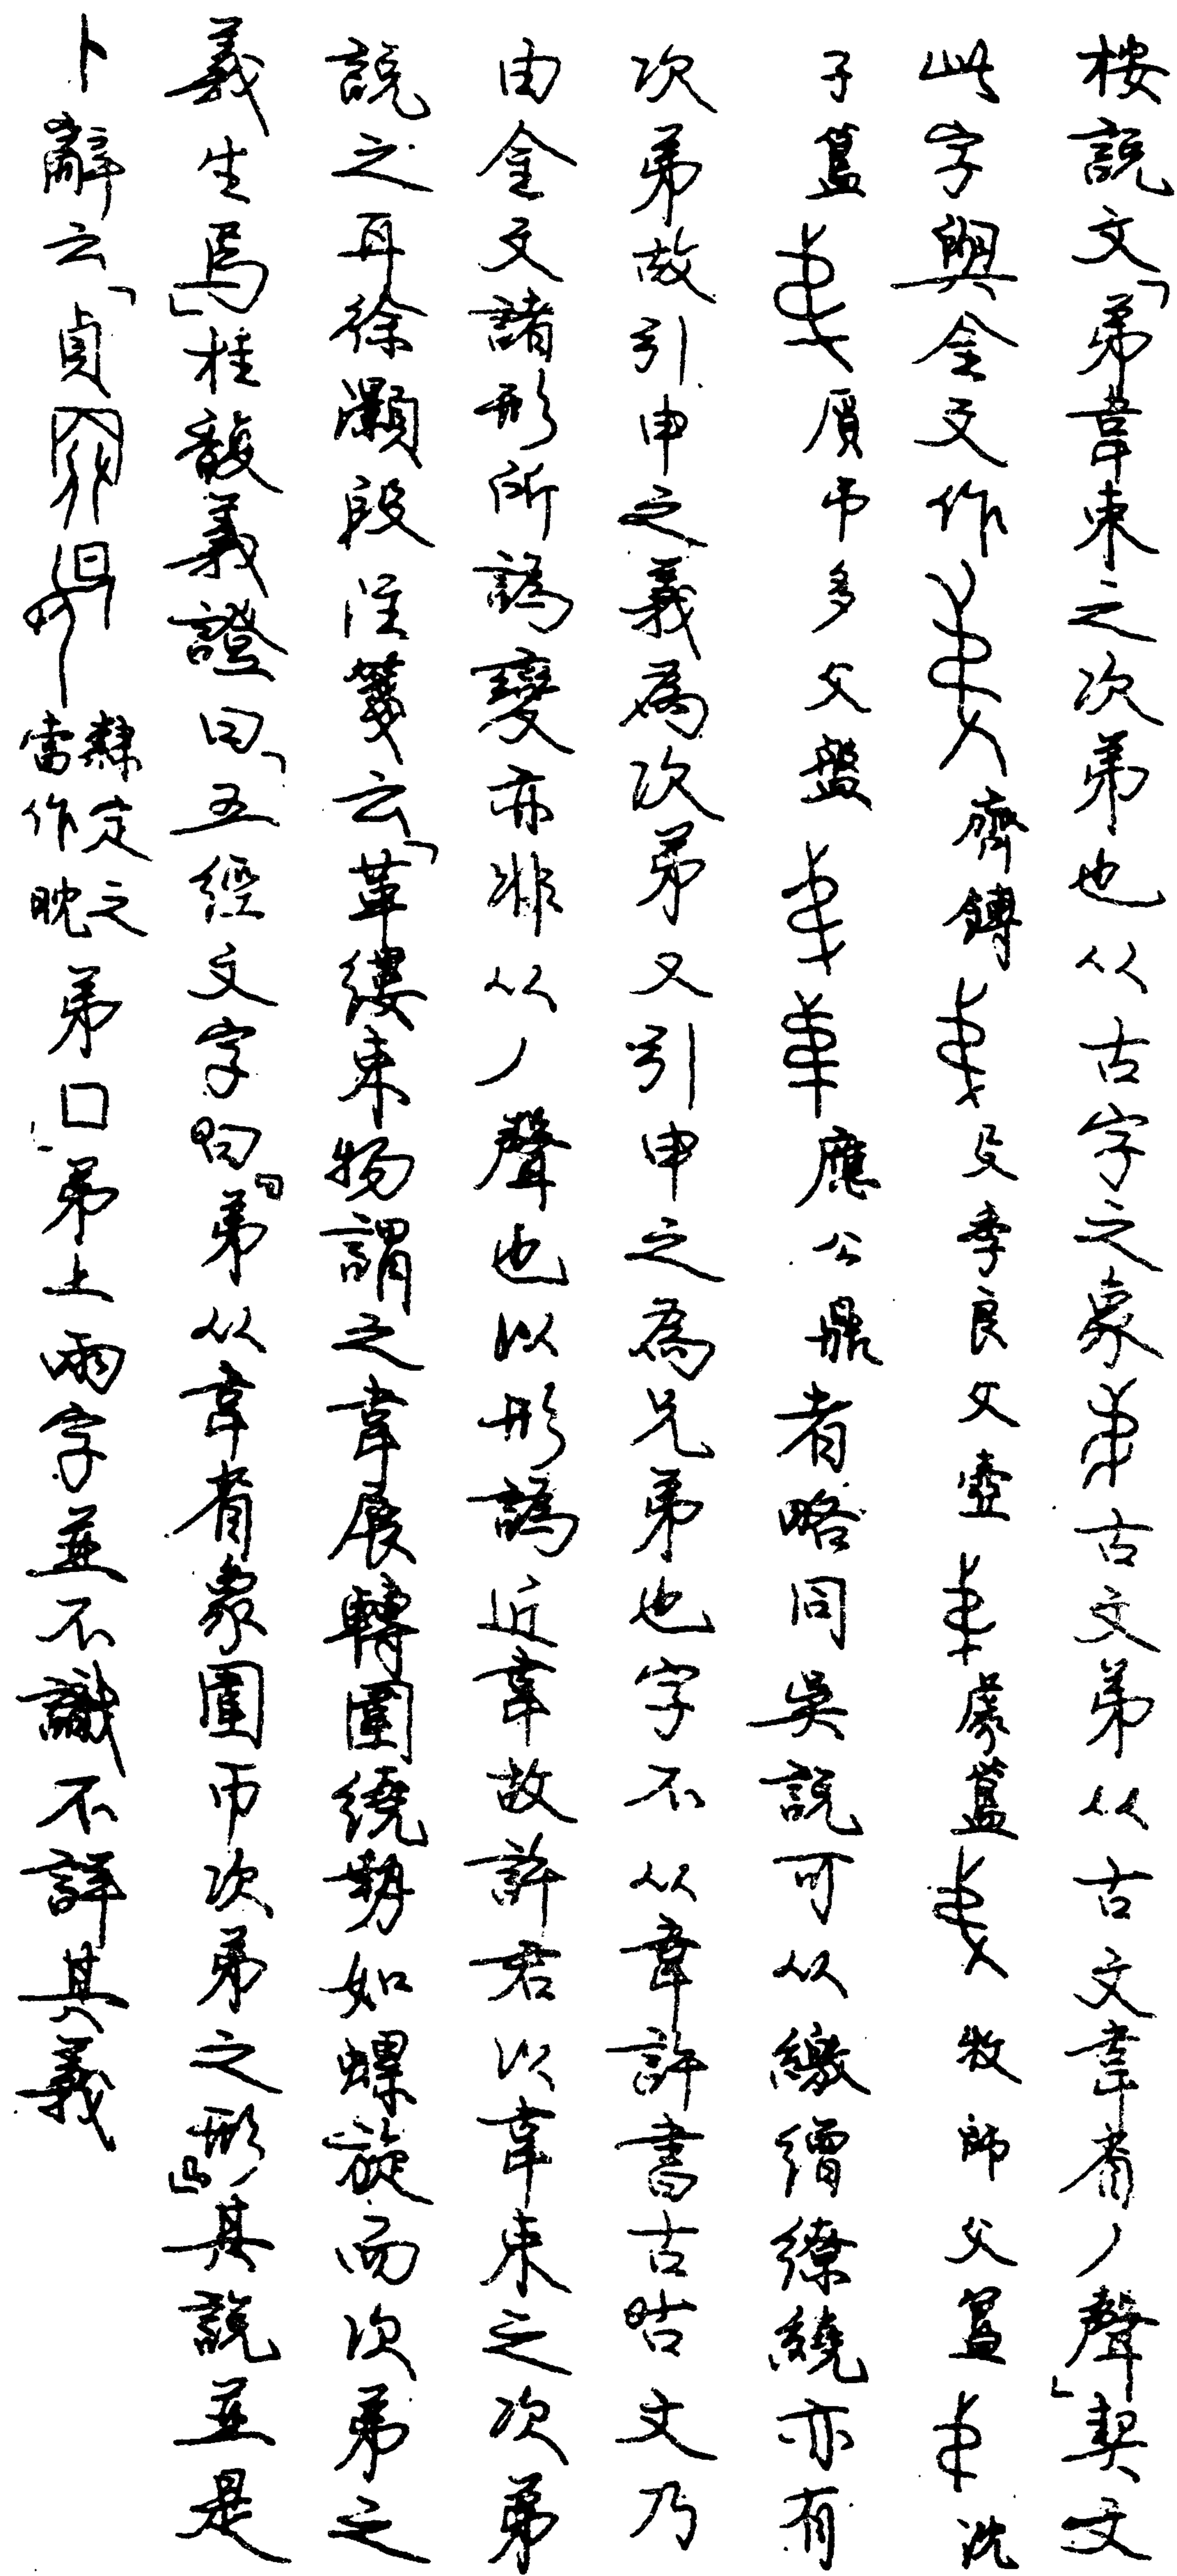 桉說文「弟韋束之次弟也从古字之象古文弟从古文韋省丿聲」契文
此字與金文作齊鎛殳季良父壺豦簋牧師父簋沈
子簋㝬弔多父盤應公鼎者略同吳說可从繳繒繚繞亦有
次弟故引申之義為次弟又引申之為兄弟也字不从韋許書古咭文乃
由金文諸形所譌變亦非从丿聲也以形譌近韋故許君以韋束之次弟
說之耳徐灝段注箋云「革縷束物謂之韋展轉圍繞勢如螺旋而次弟之
義生焉」桂馥義證曰「五經文字曰『弟从韋省象圍帀次弟之形』」其說並是
卜辭云「貞隸定之當作眈弟口」弟上兩字並不識不詳其義